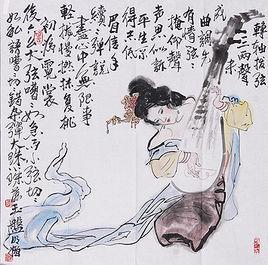 轉軸撥弦
三兩聲未
成曲調先
有情弦弦
掩抑聲
聲思似訴
平生不
得志低
眉信手
續續彈說
盡心中無限事
輕攏慢撚抹復挑
初為霓裳
後六幺大弦嘈嘈如急雨小弦切切
如私語嘈嘈切切錯雜彈大珠小珠落玉盤